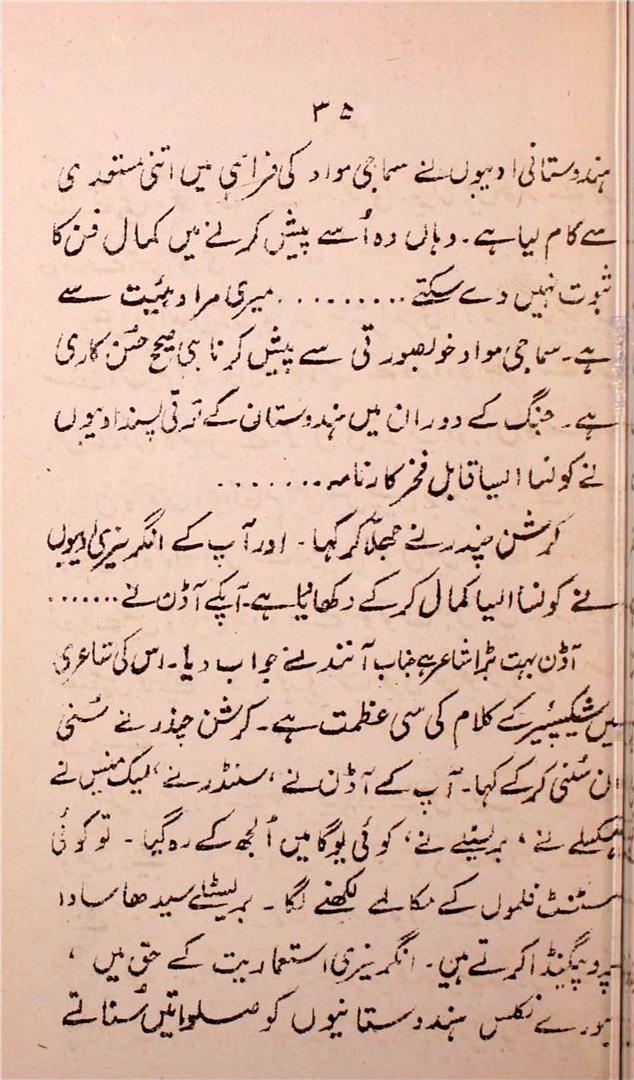 ۳۵
ہندوستانی ادیبوں نے سماجی مواد کی فراہمی میں اتنی مستعدی
سے کام لیا ہے۔ وہاں وہ اُسے پیش کرنے میں کمال فن کا
ثبوت نہیں دے سکتے ......... میری مراد ہیئت سے
ہے۔ سماجی مواد خوبصورتی سے پیش کرنا ہی صحیح حسُن کاری
ہے۔ جنگ کے دوران میں ہندوستان کے ترقی پسند ادیبوں
نے کونسا ایسا قابل فخر کارنامہ .......
کرشن چندر نے جھلّا کر کہا۔ اور آپ کے انگریزی ادیبوں
نے کونسا ایسا کمال کر کے دکھایا ہے۔ آپکے آڈن نے .......
آڈن بہت بڑا شاعر ہے جناب آنند نے جواب دیا۔ اس کی شاعری
میں شیکسپئیر کے کلام کی سی عظمت ہے۔ کرشن چندر نے سُنی
ان سُنی کر کے کہا۔ آپ کے آڈن نے، سپنڈر نے، لیک منیس نے
ہکسلے نے، پریسٹلے نے، کوئی یوگا میں اُلجھ کے رہ گیا۔ تو کوئی
سٹنٹ فلموں کے مکالمے لکھنے لگا۔ پریسٹلے سیدھا سادا
پروپیگنڈا کرتے ہیں۔ انگریزی استعماریت کے حق میں،
بورے نکلس ہندوستانیوں کو صلواتیں سُناتے